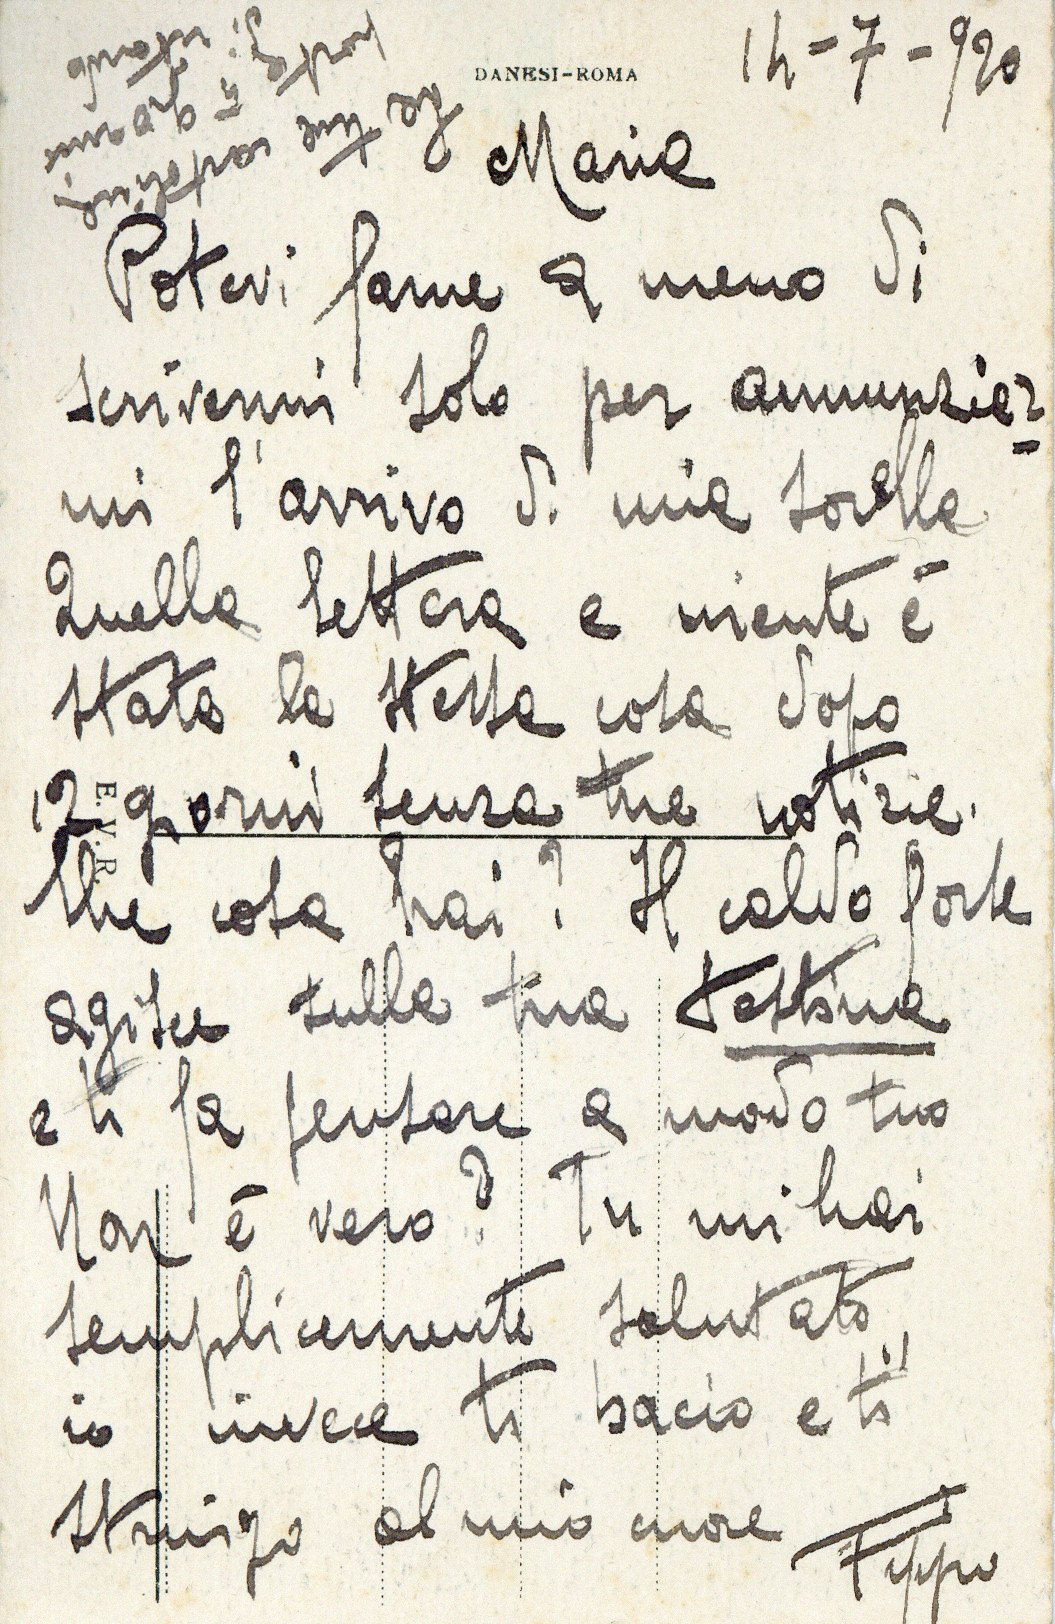 DANESI-ROMA
14-7-920
Maria
Potevi farne a meno di
scrivermi solo per annunziar=
mi l'arrivo di mia sorella
Quella lettera e niente è
stata la stessa cosa dopo
12 giorni senza tue notizie.
E.V.R.
Che cosa hai? Il caldo forse
agisce sulla tua testina
e ti fa pensare a modo tuo
Non è vero? Tu mi hai
semplicemente salutato,
io invece ti bacio e ti
stringo al mio cuore
Pippo
La tua cartolina
porta
giorni
di ritardo